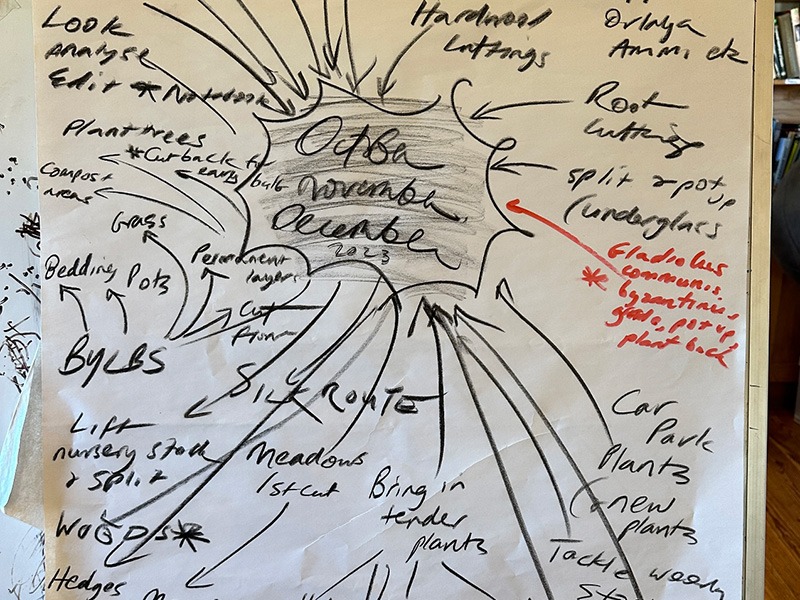 Look
Analyse
Edit * Notebook
Hardwood
Cuttings
Orlaya
Ammi etc
Root
Cuttings
split & pot up
(underglass
Gladiolus
communis
* byzantinus,
grade, pot up,
plant back
October
November
December
2023
Plant trees
*Cut back for
early bulb
Compost
areas
Grass
Bedding
Pots
Permanent
layers
Cut
flower
BULBS
SILK ROUTE
Lift
nursery stock
& split
Meadows
1st cut
Bring in
tender
plants
Car
Park
Plants
(new
plants
WOODS*
Hedges
Tackle weedy